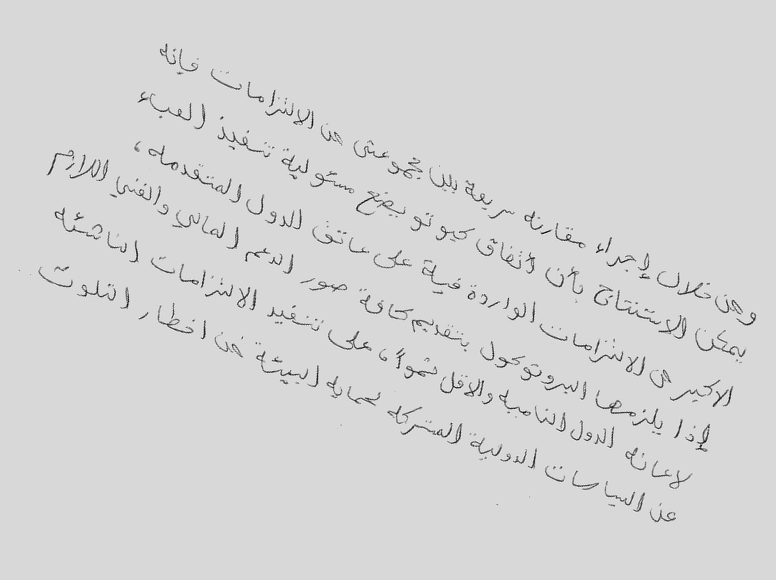 ومن خلال إجراء مقارنه سريعة بين مجموعتي من الالتزامات فإنه
يمكن الاستنتاج بأن اتفاق كيوتو يضع مسئولية تنفيذ العبء
الاكبر من الالتزامات الواردة فية على عاتق الدول المتقدمه،
إذا يلزمها البروتوكول بتقديم كافة صور الدعم المالي والفني اللازم
لاعانه الدول الناميه والاقل نمواً، على تنفيد الالتزامات الناشئه
عن السياسات الدولية المشتركه لحمايه البيئة من اخطار التلوث